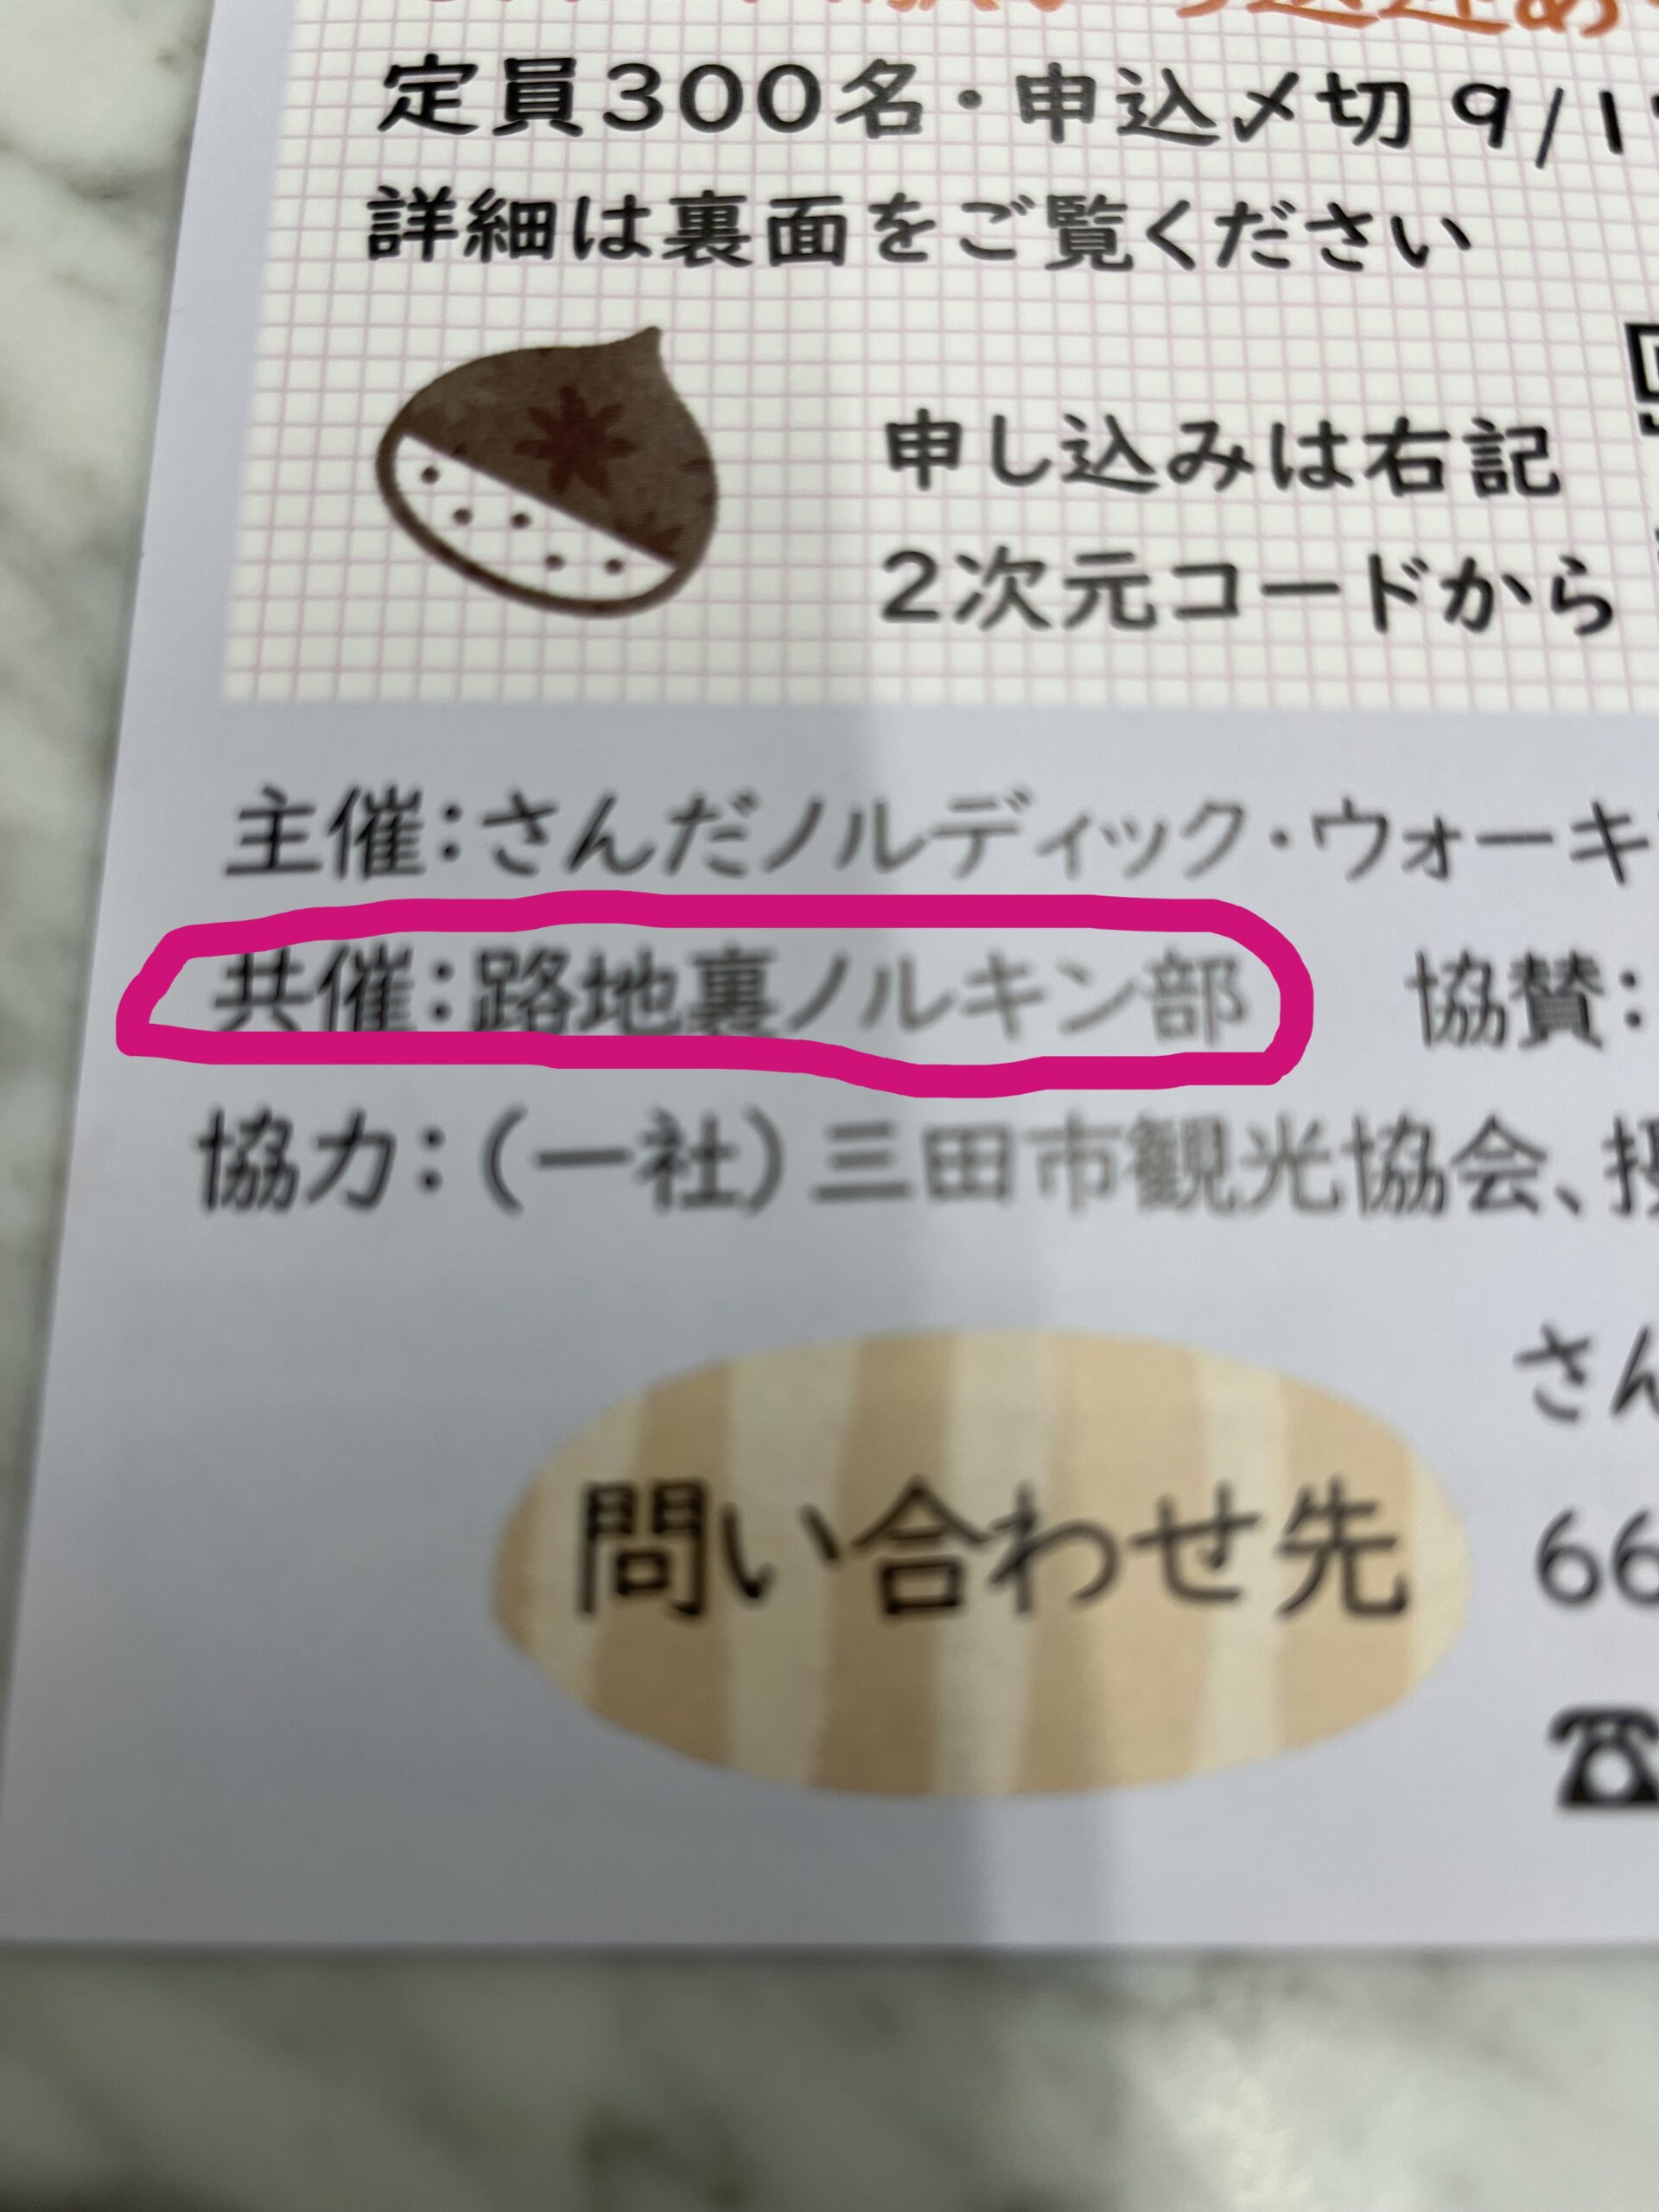 定員300名・申込〆切 9/1
詳細は裏面をご覧ください
申し込みは右記
2次元コードから
主催：さんだノルディック・ウォーキ
共催：路地裏ノルキン部　協賛：
協力：（一社）三田市観光協会、
さん
問い合わせ先
66